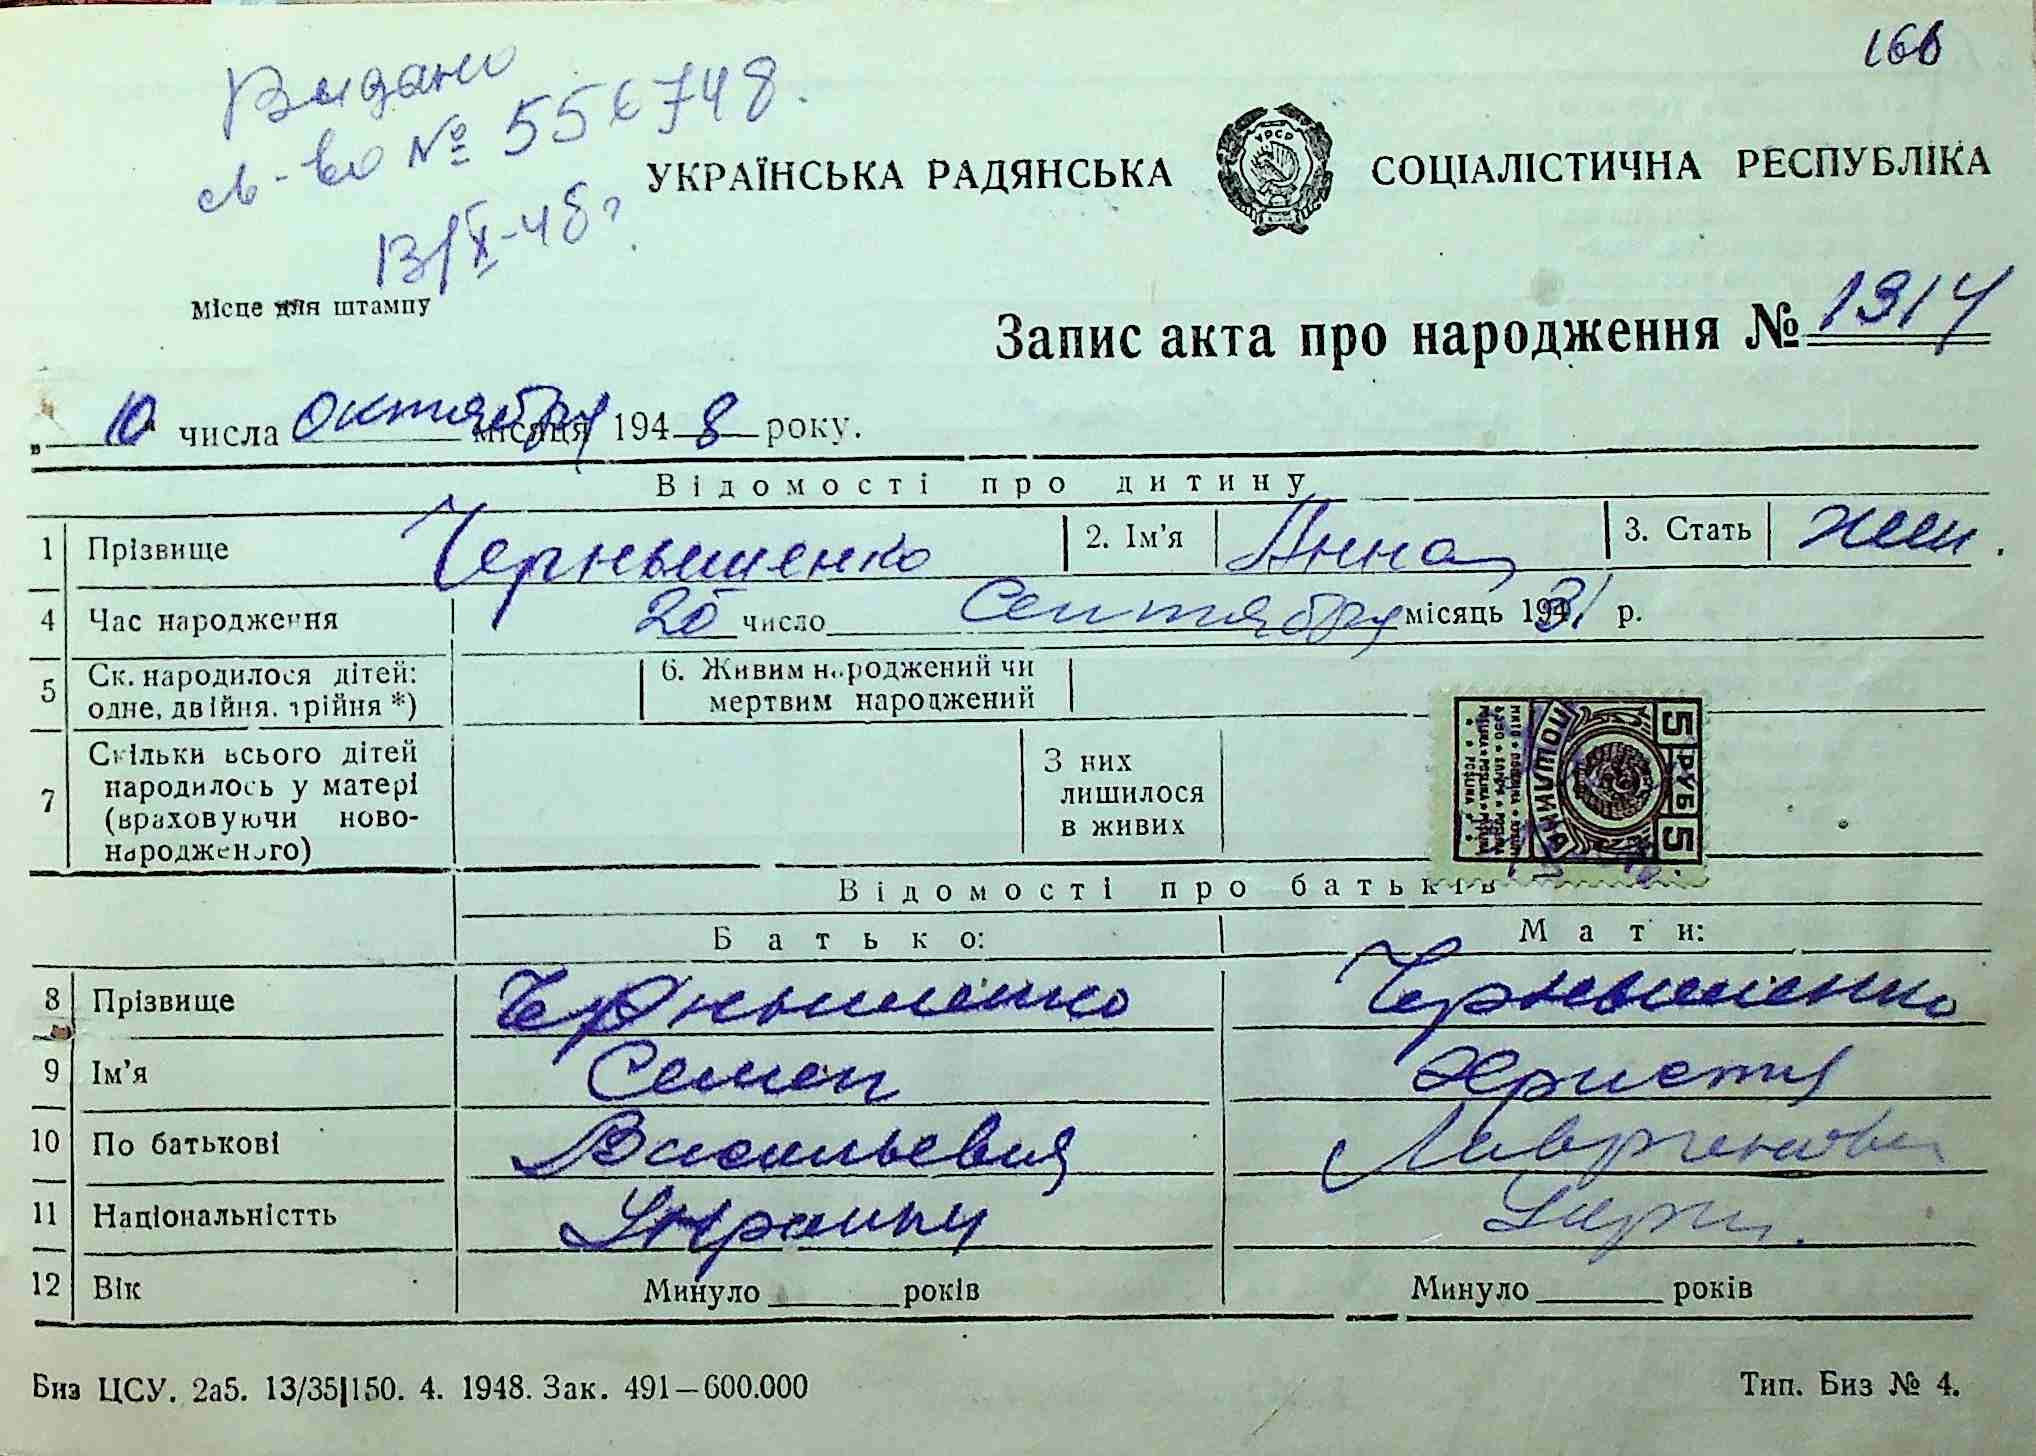 168
Видано
св-во № 556748.
13/X-48 г.
УКРАЇНСЬКА РАДЯНСЬКА СОЦІАЛІСТИЧНА РЕСПУБЛІКА
УРСР
Місце для штампу
Запис акта про народження № 1914
„10" числа октября місяця 1948 року.
Відомості про дитину
1 Прізвище Чернышенко 2. Ім'я Анна 3. Стать жен.
4 Час народження 25 число Сентября місяць 1931 р.
5 Ск. народилося дітей: одне, двійня, трійня *) 6. Живим народжений чи мертвим народжений
7 Скільки всього дітей народилось у матері (враховуючи новонародженого) З них лишилося в живих
5 РУБ 5
ПОШЛИНА
Відомості про батьків
Батько: Мати:
8 Прізвище Чернышенко Чернышенко
9 Ім'я Семен Христя
10 По батькові Васильевич
11 Національністть Украинец Укр.
12 Вік Минуло ____ років Минуло ____ років
Биз ЦСУ. 2а5. 13/35|150. 4. 1948. Зак. 491—600.000 Тип. Биз № 4.